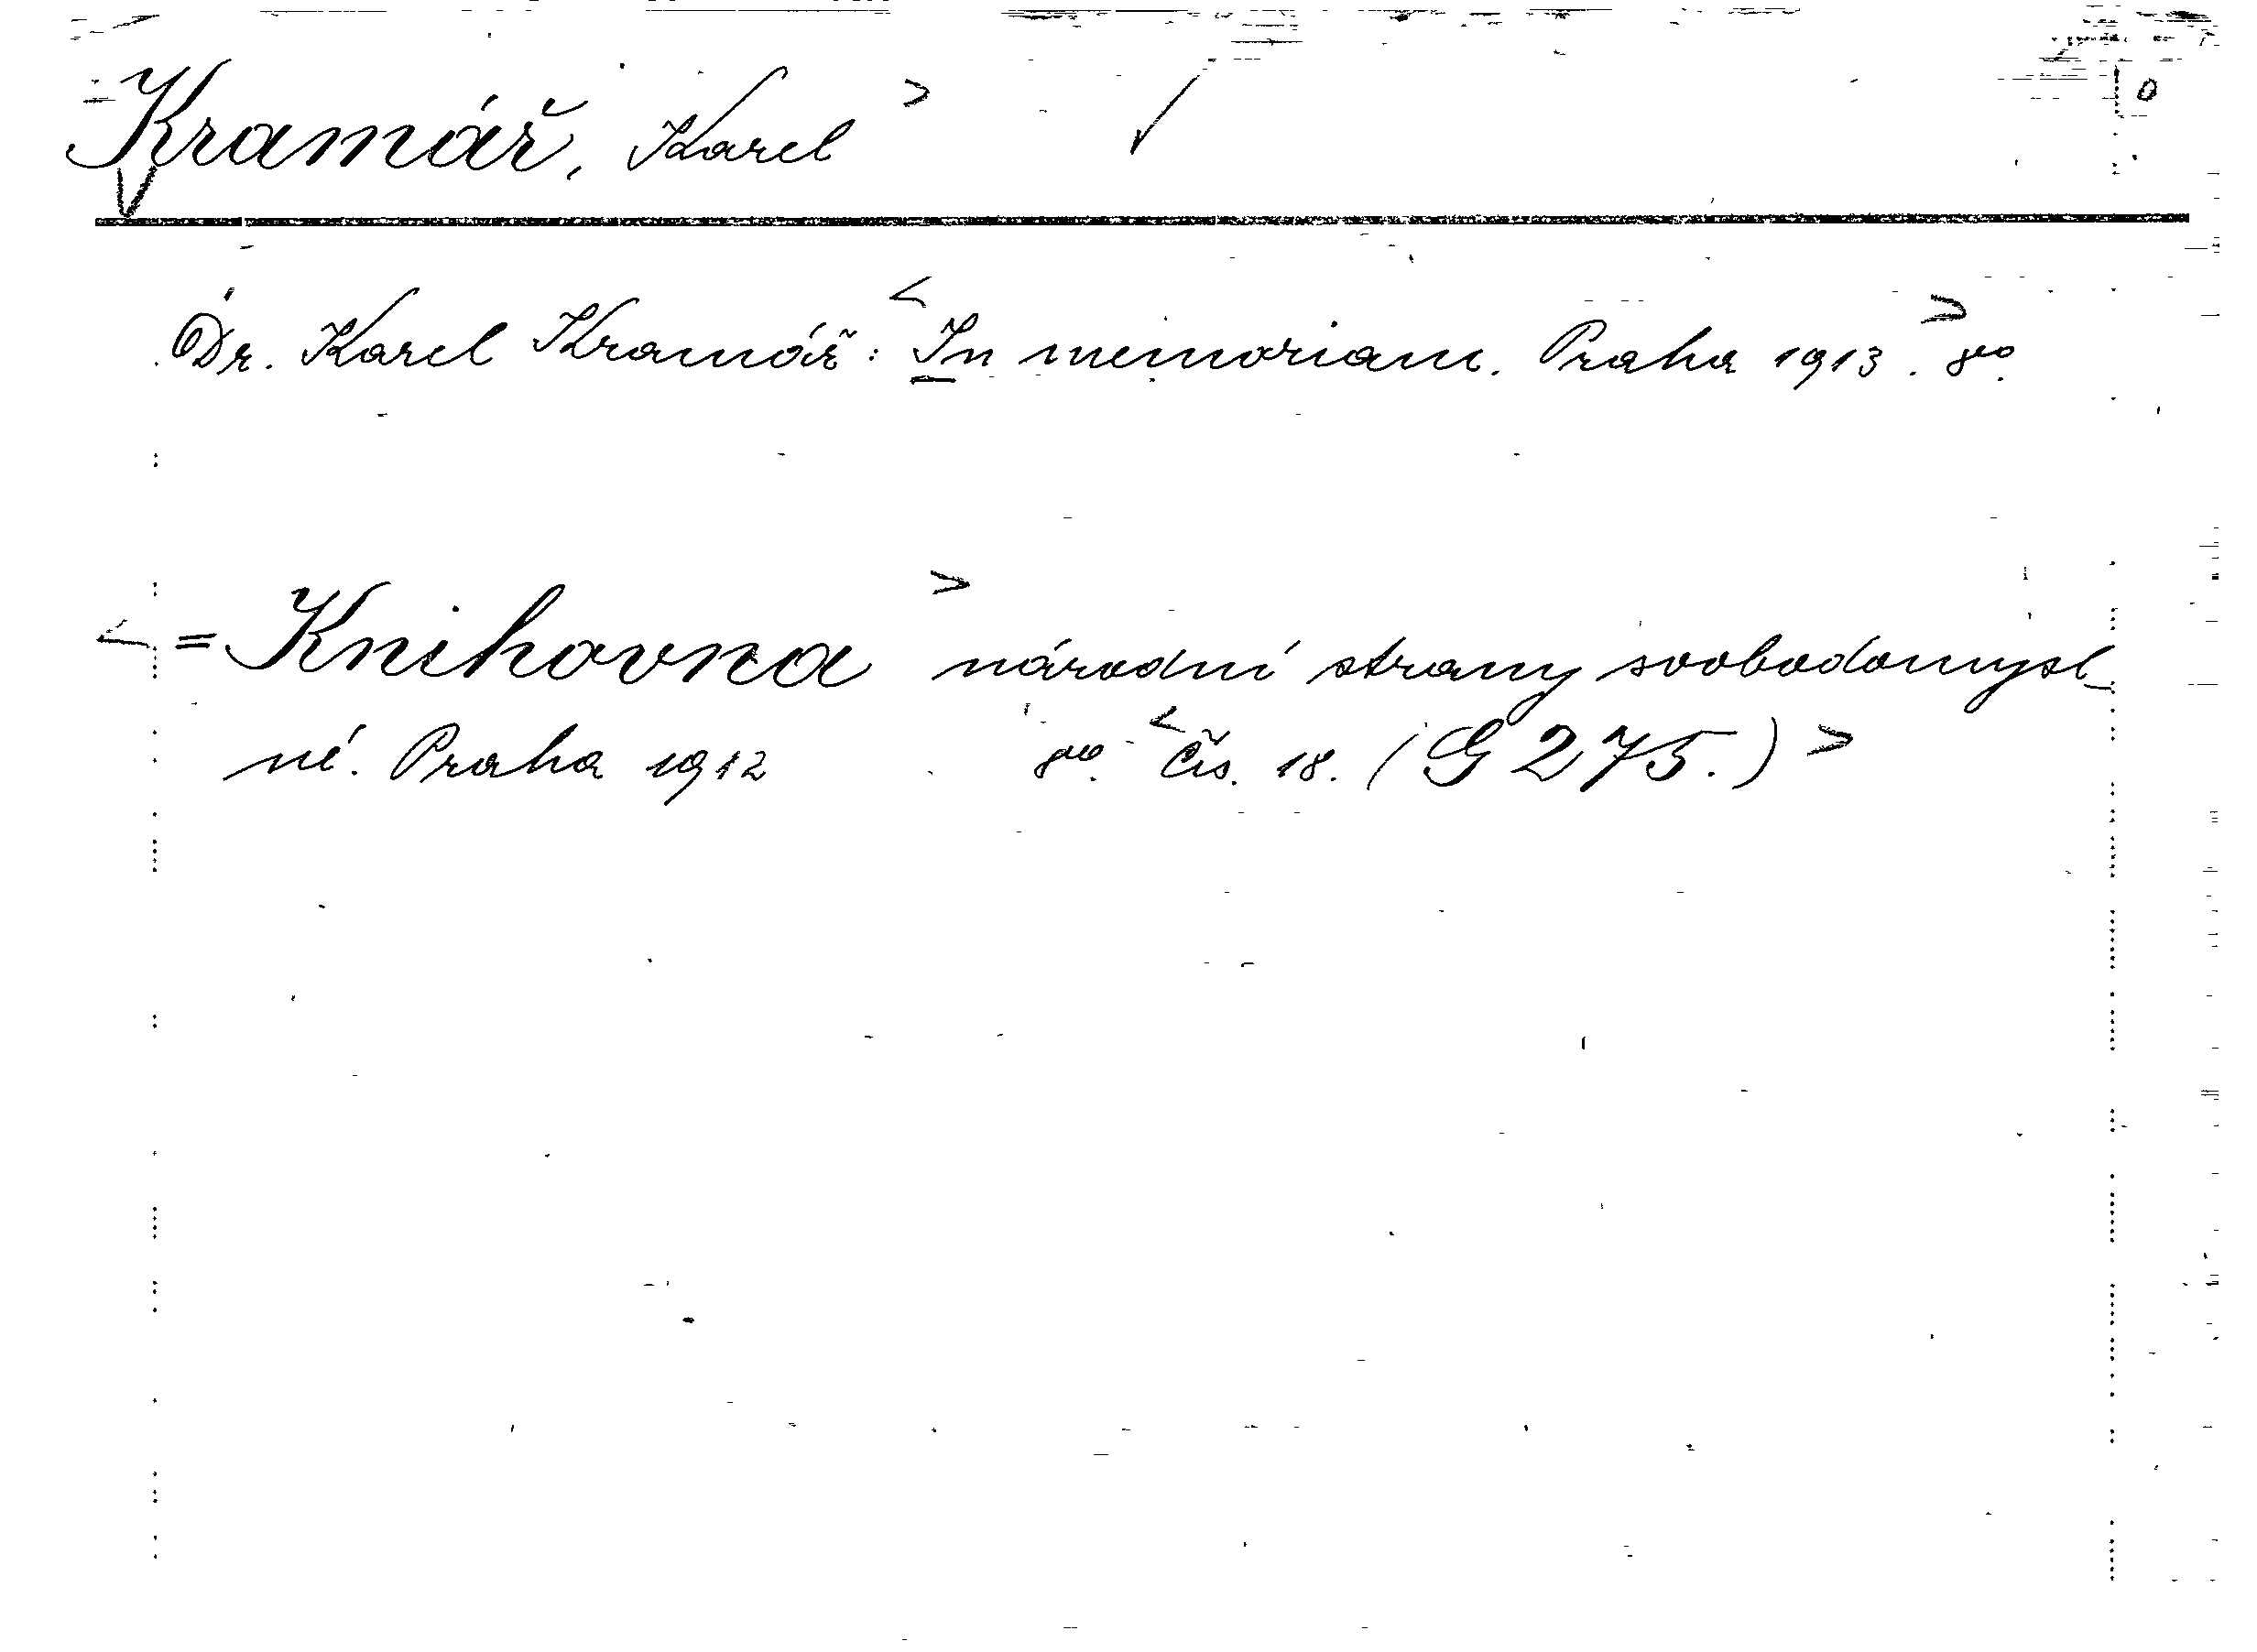 Kramář, Karel
Dr. Karel Kramář: In memoriam. Praha 1913. 8vo.
= Knihovna národní strany svobodomysl-
né. Praha 1912 8vo. Čís. 18. (G 275.)